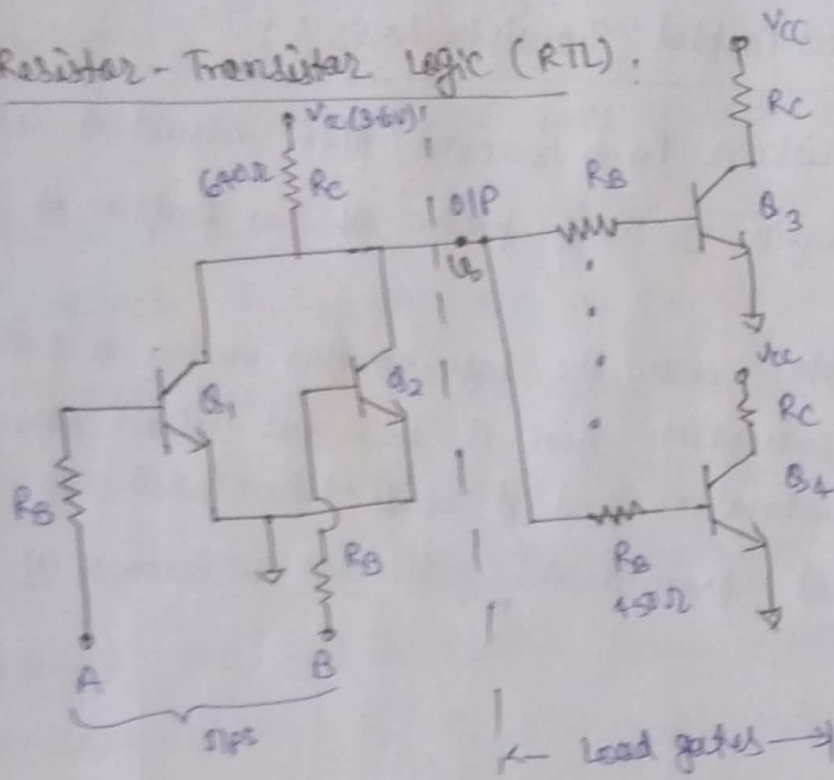 Resistor - Transistor Logic (RTL) :
VCC
RC
VCC (3.6V)
640Ω RC
O/P
RB
Q3
V0
VCC
RC
Q1
Q2
Q4
RB
RB
RB
450Ω
A
B
I/Ps
← Load gates →